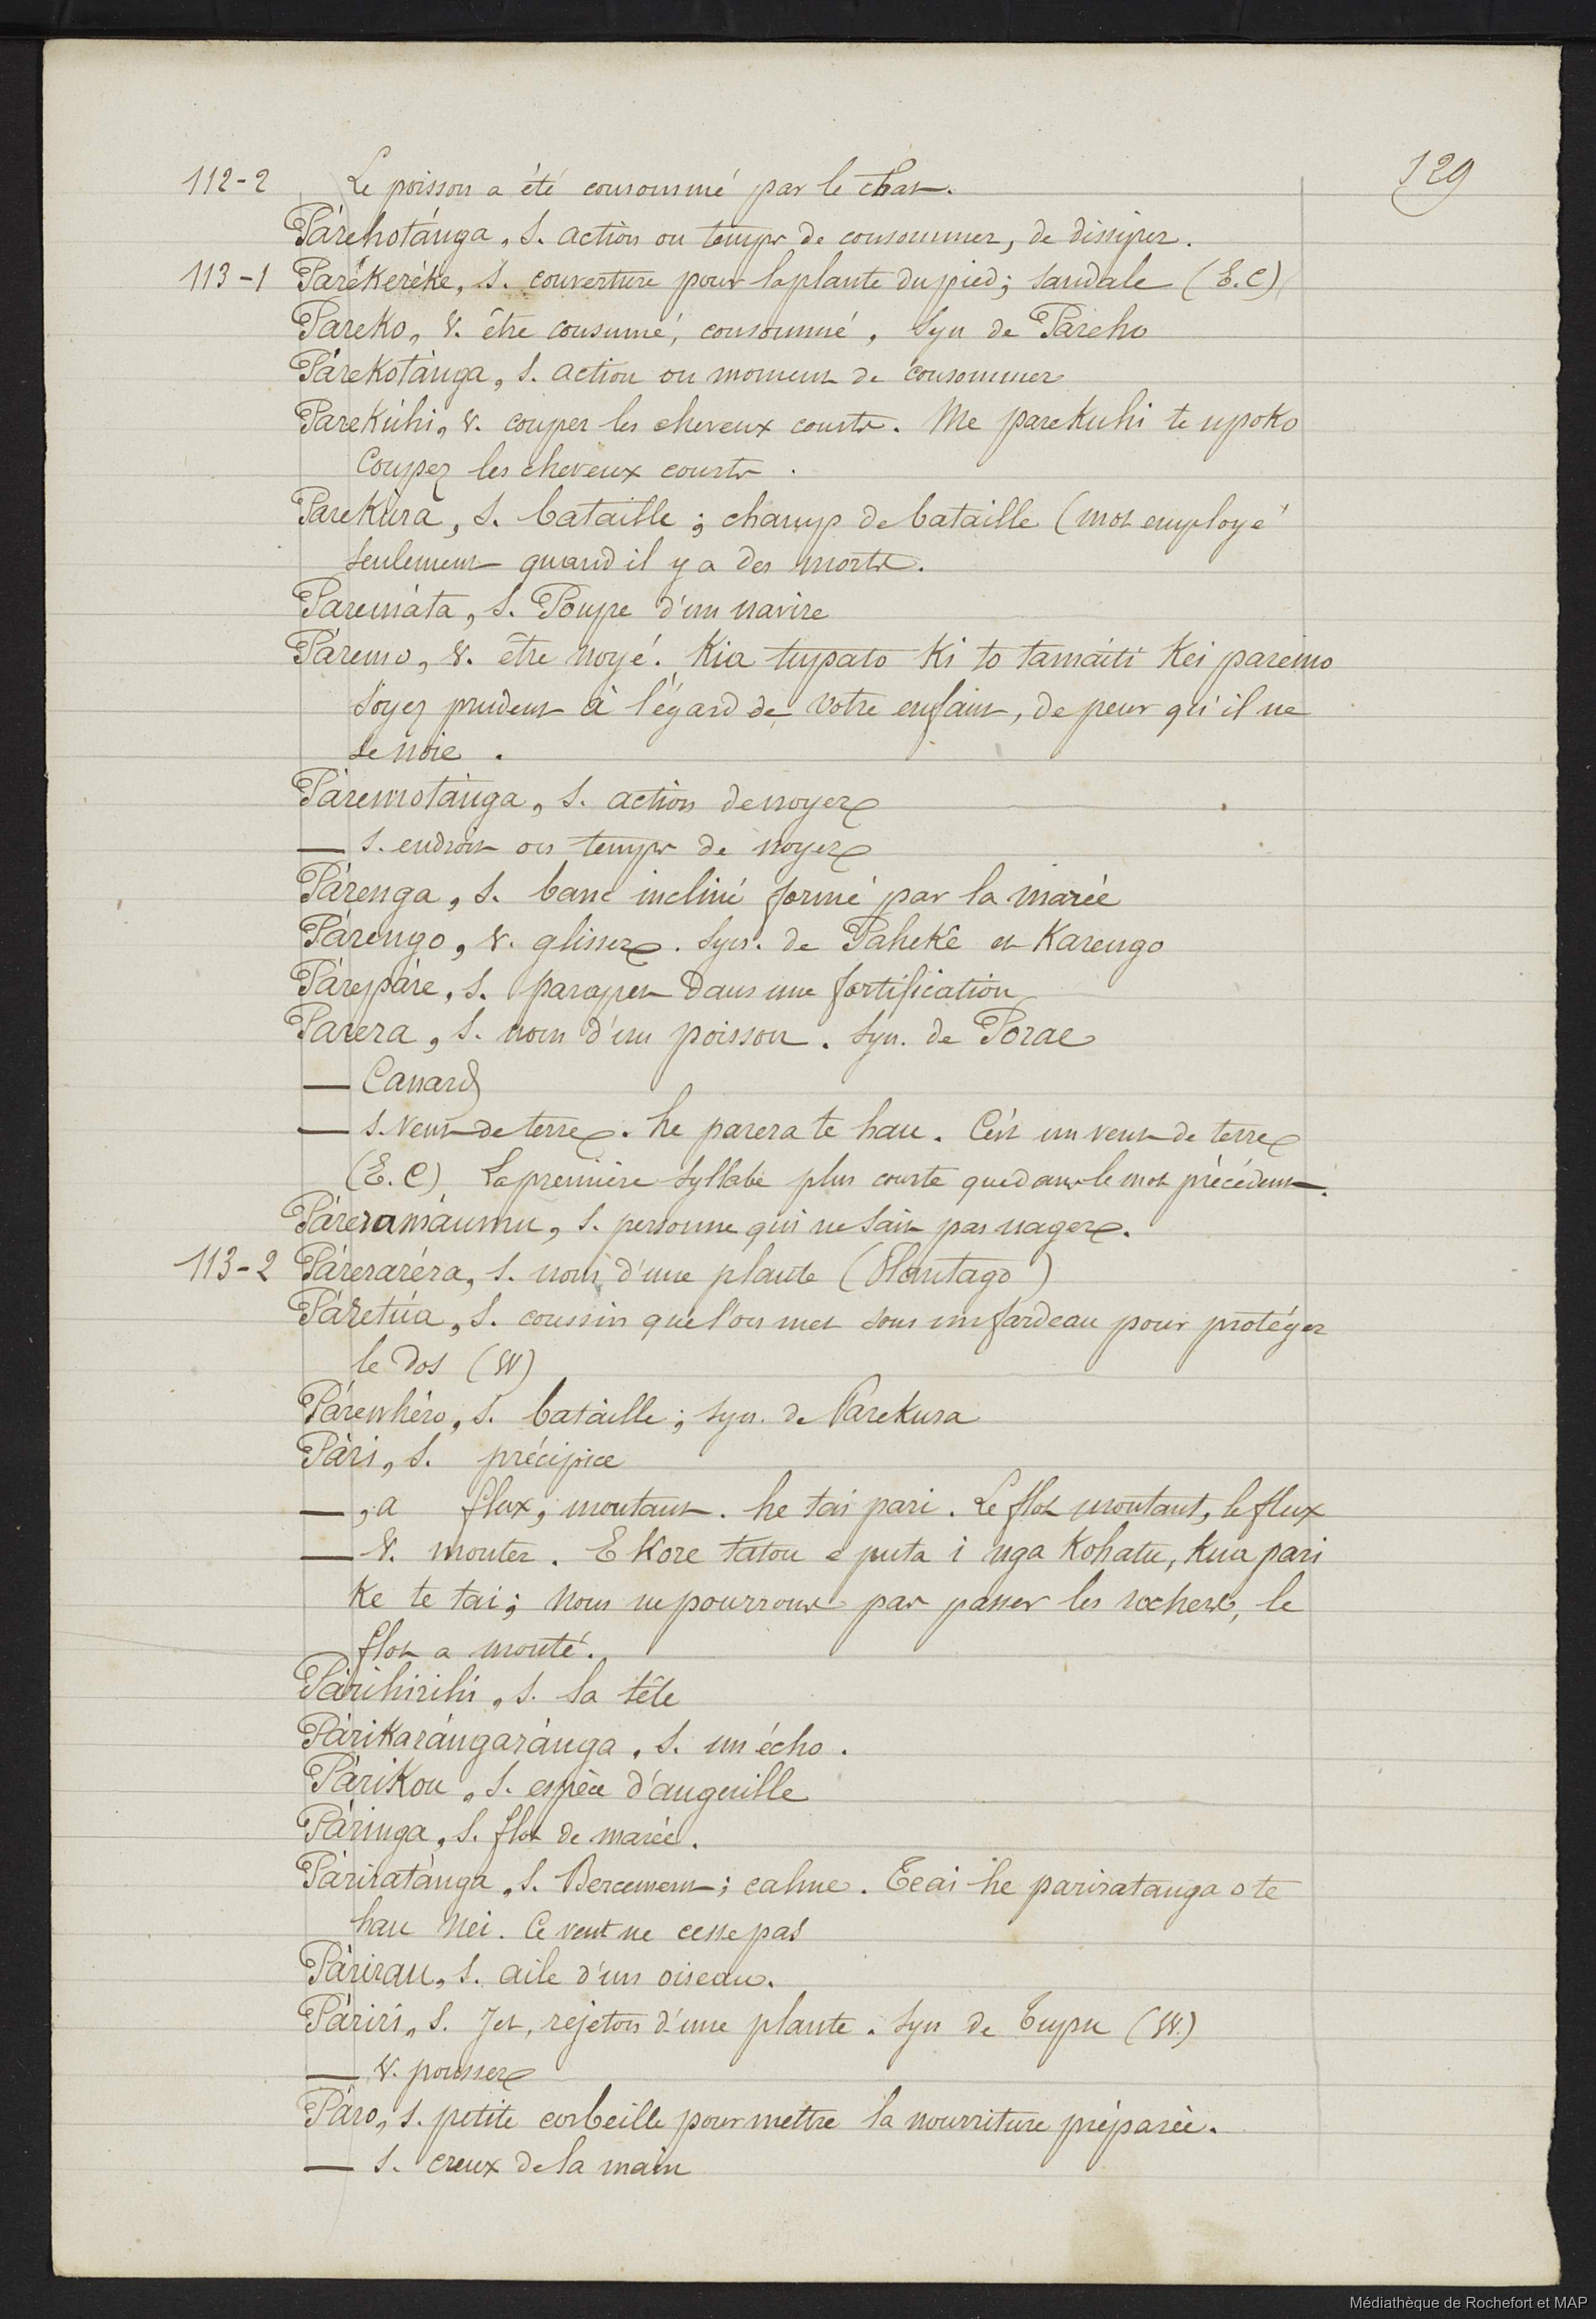 129
112-2 Le poisson a été consommé par le chat.
Párehotánga, s. action ou temps de consommer, de dissiper.
113-1 Parékeréke, s. couverture pour la plante du pied; sandale (E.C)
Pareko, v. être consumé, consommé, Syn de Pareho
Párekotánga, s. action ou moment de consommer
Parekúhi, v. couper les cheveux courts. Me parekuhi te upoko
Coupez les cheveux courts.
Parekúra, s. bataille; champ de bataille (mot employé
seulement quand il y a des morts.
Paremáta, s. Poupe d'un navire
Páremo, v. être noyé. Kia tupato ki to tamaiti kei paremo
Soyez prudent à l'égard de votre enfant, de peur qu'il ne
se noie.
Páremotánga, s. action de noyer
— s. endroit ou temps de noyer
Párenga, s. banc incliné formé par la marée
Párengo, v. glisser. Syn. de Paheke et Karengo
Párepáre, s. parapet dans une fortification
Parera, s. nom d'un poisson. Syn. de Porae
— Canard
— s. Vent de terre. he parera te hau. C'est un vent de terre
(E.C) La première syllabe plus courte que dans le mot précédent.
Páreramáumu, s. personne qui ne sait pas nager.
113-2 Páreraréra, s. nom d'une plante (Plantago)
Páretúa, s. coussin que l'on met sous un fardeau pour protéger
le dos (W)
Párewhéro, s. bataille; syn. de Parekura
Pári, s. précipice
—, a flux, montant. he tai pari. Le flot montant, le flux
— v. monter. E kore tatou e puta i nga Kohatu, kua pari
ke te tai; Nous ne pourrons pas passer les rochers, le
flot a monté.
Párihirihi, s. la tête
Párikarángaránga, s. un écho.
Párikou, s. espèce d'anguille
Páringa, s. flot de marée.
Páriratánga, s. Bercement; calme. Teai he pariratanga o te
hau nei. Ce vent ne cesse pas
Párirau, s. aile d'un oiseau.
Páriri, s. Jet, rejeton d'une plante. Syn de Tupu (W.)
— v. pousser
Páro, s. petite corbeille pour mettre la nourriture préparée.
— s. creux de la main
Médiathèque de Rochefort et MAP